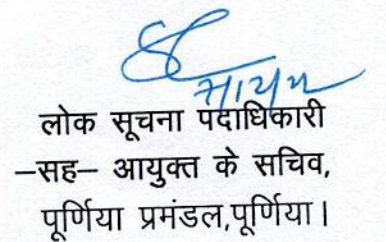 लोक सूचना पदाधिकारी
–सह– आयुक्त के सचिव,
पूर्णिया प्रमंडल,पूर्णिया।